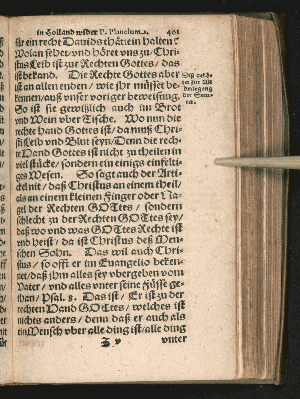 in Holland wider P. Plancium. 401
für ein recht Davids thätlein halten?
Wolan sehet vnd höret vns zu/ Chri-
stus Leib ist zur Rechten Gottes/ das
ist bekand. Die Rechte Gottes aber
ist an allen enden/ wie jhr müsset be-
kennen/ auß vnser voriger beweisung.
So ist sie gewißlich auch im Brot
vnd Wein vber Tische. Wo nun die
rechte hand Gottes ist/ da muß Chri-
sti Leib vnd Blut seyn/ Denn die rech-
te Hand Gottes ist nicht zu theilen in
viel stücke/ sondern ein einigs einfelti-
ges Wesen. So sagt auch der Arti-
ckel nit/ daß Christus an einem theil/
als an einem kleinen Finger oder Na-
gel der Rechten GOTtes/ sondern
schlecht zu der Rechten GOTtes sey/
daß wo vnd was GOTtes Rechte ist
vnd heist/ da ist Christus deß Men-
schen Sohn. Das wil auch Chri-
stus/ so offt er im Evangelio beken-
net/ daß jhm alles sey vbergeben vom
Vater/ vnd alles vnter seine füsse ge-
than/ Psal. 8. Das ist/ Er ist zu der
rechten Hand GOTtes/ welches ist
nichts anders/ denn daß er auch als
ein Mensch vber alle ding ist/ alle ding
vnter